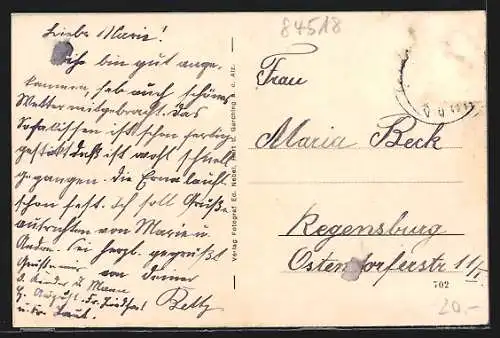 84518
Liebe Marie!
Ich bin gut ange-
kommen, hab auch schönes
Wetter mitgebracht. Das
ist schon fertig
gestellt das ist wohl schnell
gegangen. Die Erna lauft
schon fest. Ich soll Grüße
ausrichten von Marie u.
Sei herzl. gegrüßt
von Deiner
Betty
Grüße
d. Kinder u. Mann
August
u.
Verlag Fotograf Ed. Nebel, Hart b. Garching a. d. Alz.
Frau
Maria Beck
Regensburg
Ostendorferstr 11/I.
702
20.-